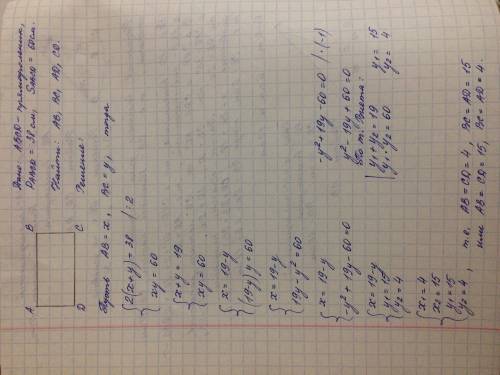 A B
D C
Дано: ABCD - прямоугольник,
PABCD = 38 см, SABCD = 60см.
Найти: AB, BC, AD, CD.
Решение:
Пусть AB = x, BC = y, тогда
{2(x+y) = 38 /:2
xy = 60
{x+y = 19
xy = 60
{x = 19-y
(19-y)y = 60
{x = 19-y
19y - y² = 60
{x = 19-y
-y² + 19y - 60 = 0
-y² + 19y - 60 = 0 /·(-1)
y² - 19y + 60 = 0
По т. Виета:
{y1 + y2 = 19
y1 · y2 = 60
y1 = 15
y2 = 4
{x = 19-y
y1 = 15
y2 = 4
{x1 = 4
x2 = 15
y1 = 15
y2 = 4
, т.е. AB = CD = 4, BC = AD = 15
или AB = CD = 15, BC = AD = 4.